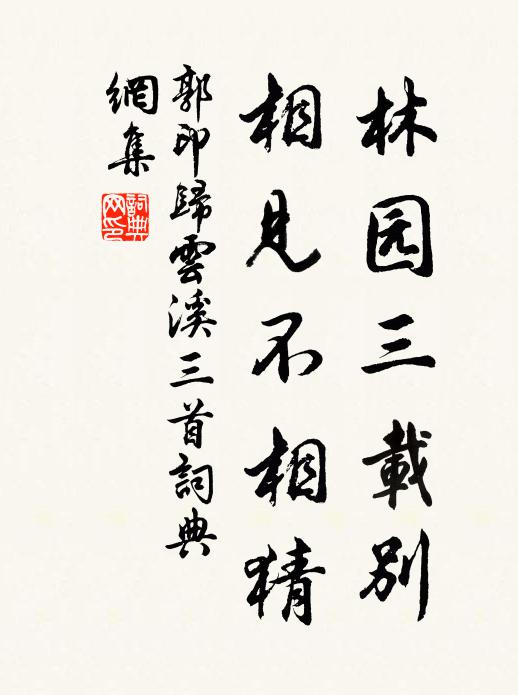 林园三載别
相見不相猜
郭印歸雲溪三首詞典
網集
詞典
网印